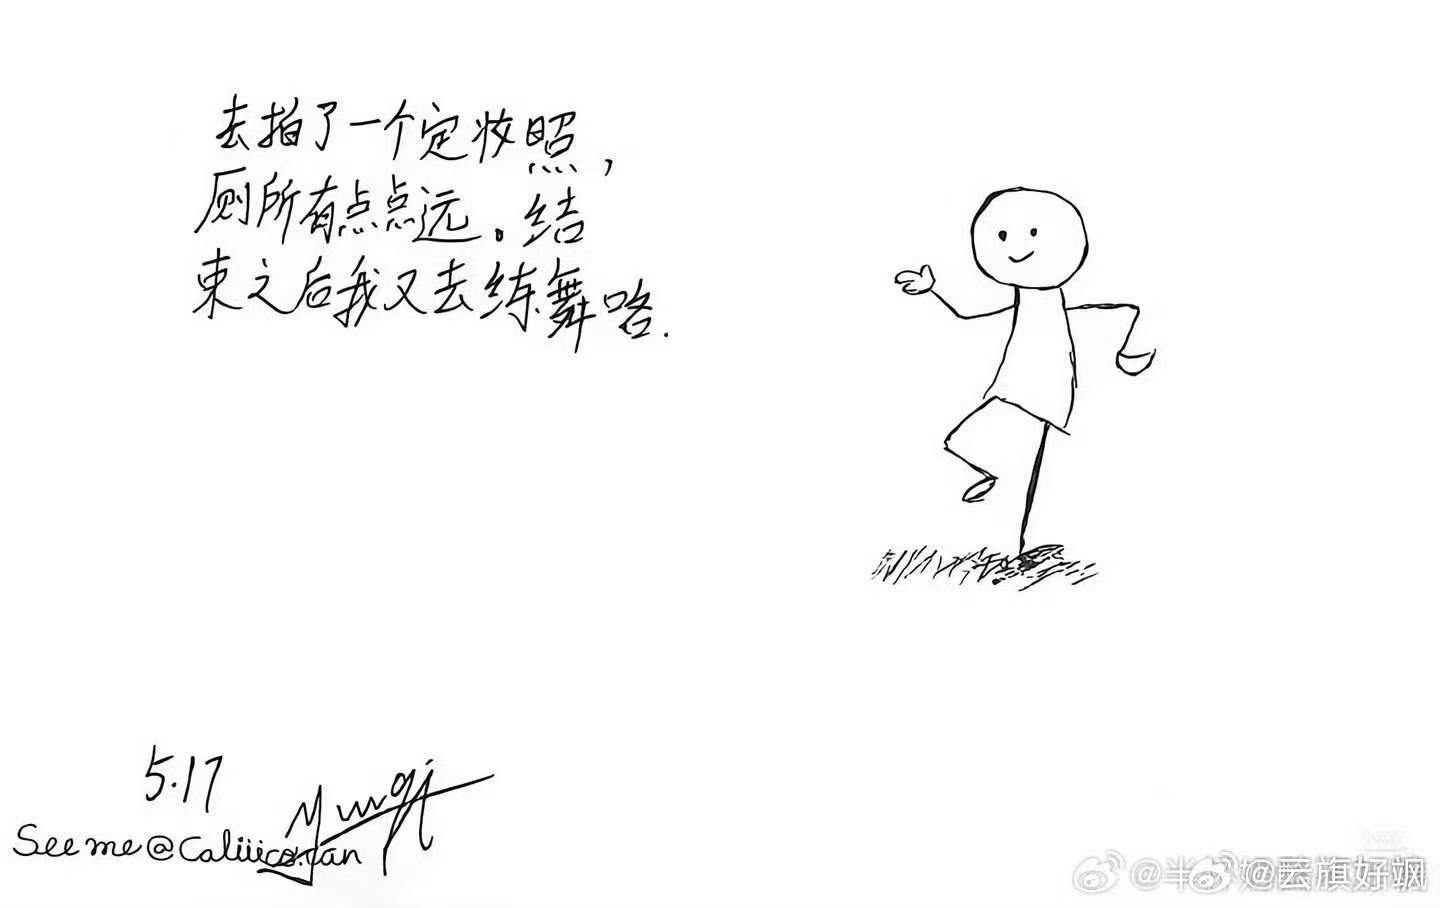 去拍了一个定妆照，
厕所有点点远。结
束之后我又去练舞咯.
5.17
Yunqi
See me@Caliiico.can
@云旗好飒